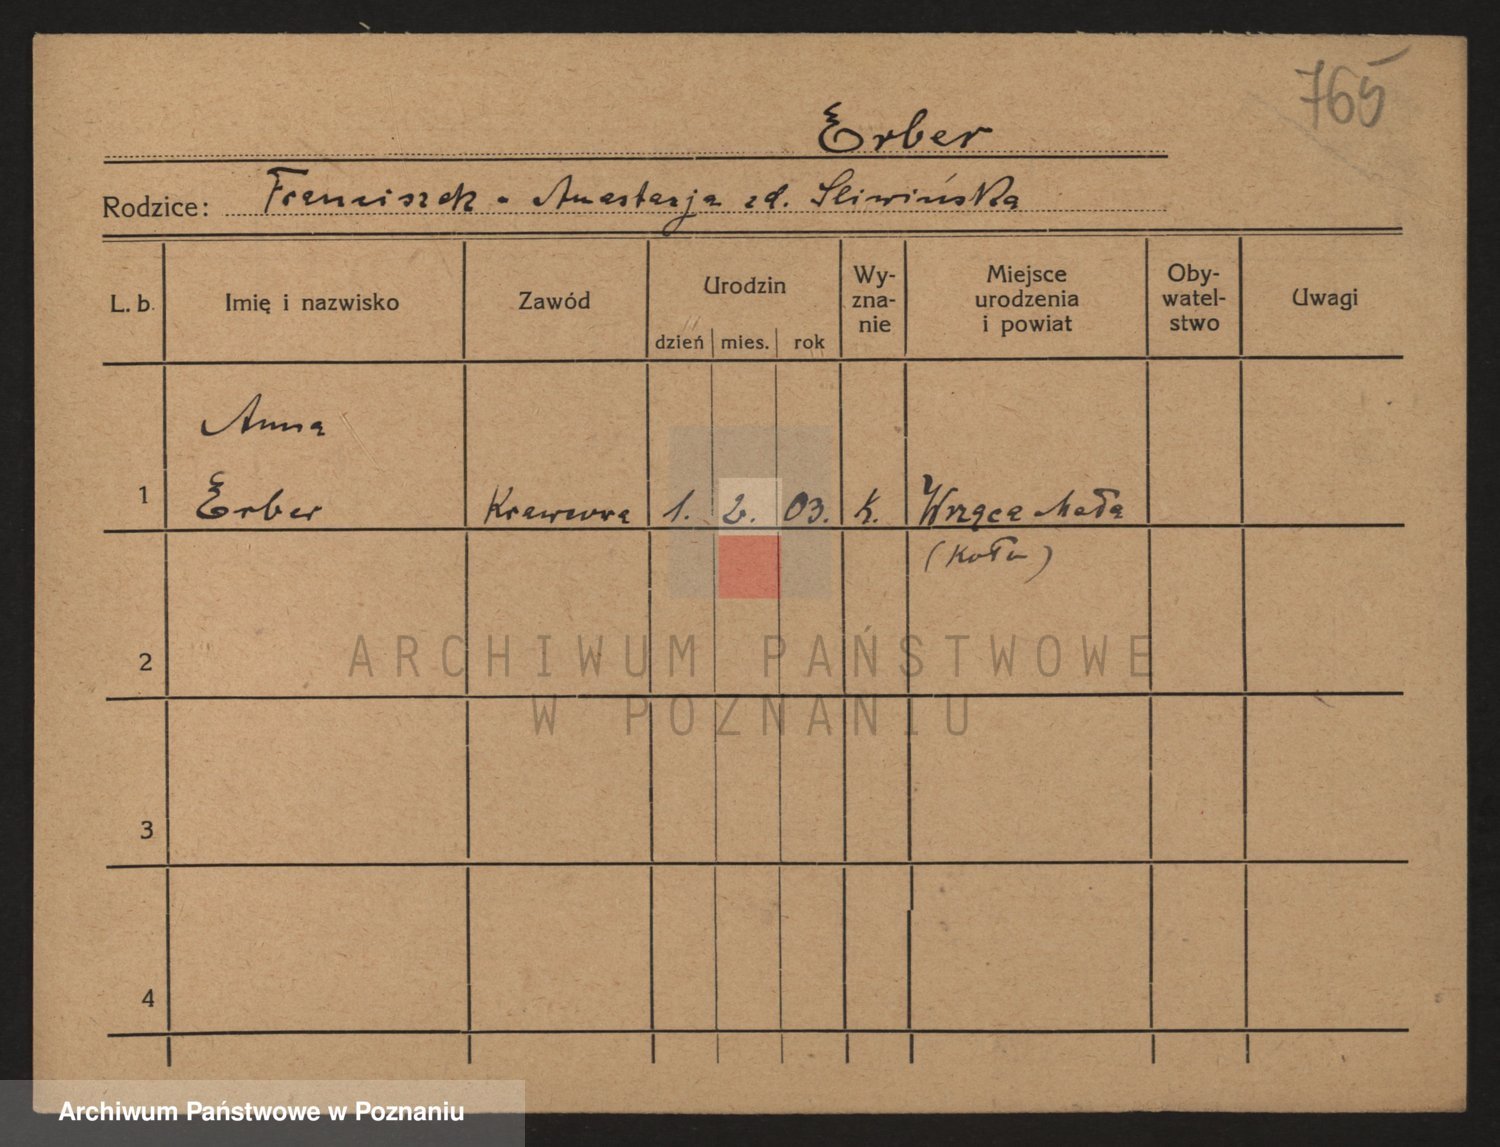 765
Erber
Rodzice: Franciszek - Anastazja zd. Sliwińska
L. b. Imię i nazwisko Zawód Urodzin dzień mies. rok Wy-zna-nie Miejsce urodzenia i powiat Oby-watel-stwo Uwagi
Anna
1 Erber Krawcowa 1. 2. 03. k. Wrząca Mała
(Koło)
2
ARCHIWUM PAŃSTWOWE
W POZNANIU
3
4
Archiwum Państwowe w Poznaniu